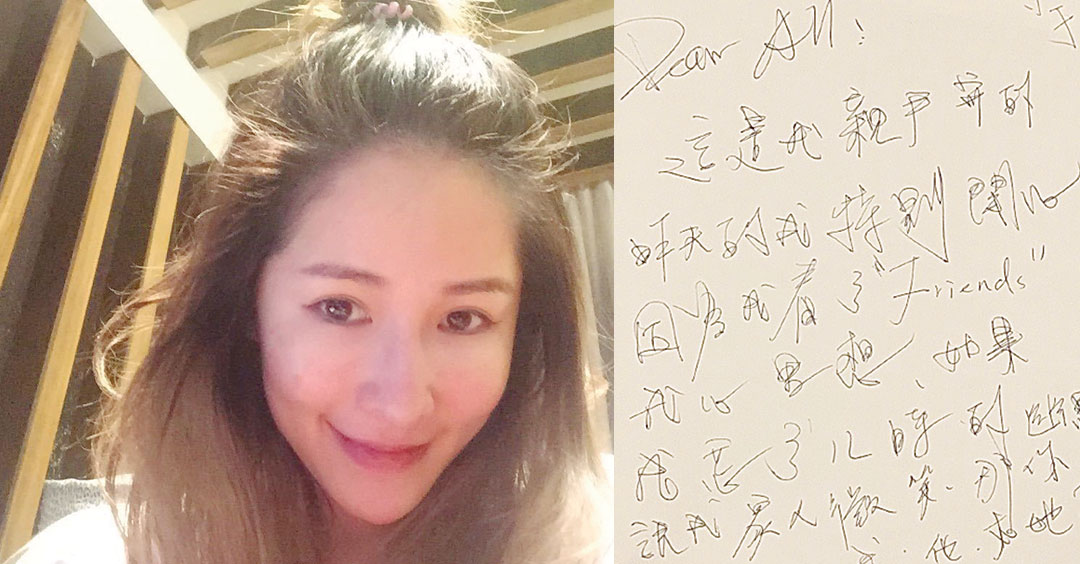 Dear All:
這是我親手寫的
昨天的我特別開心
因為我看了"Friends"
我心里想、如果
我忘了儿時的
說我 人 笑、 你
他、 她